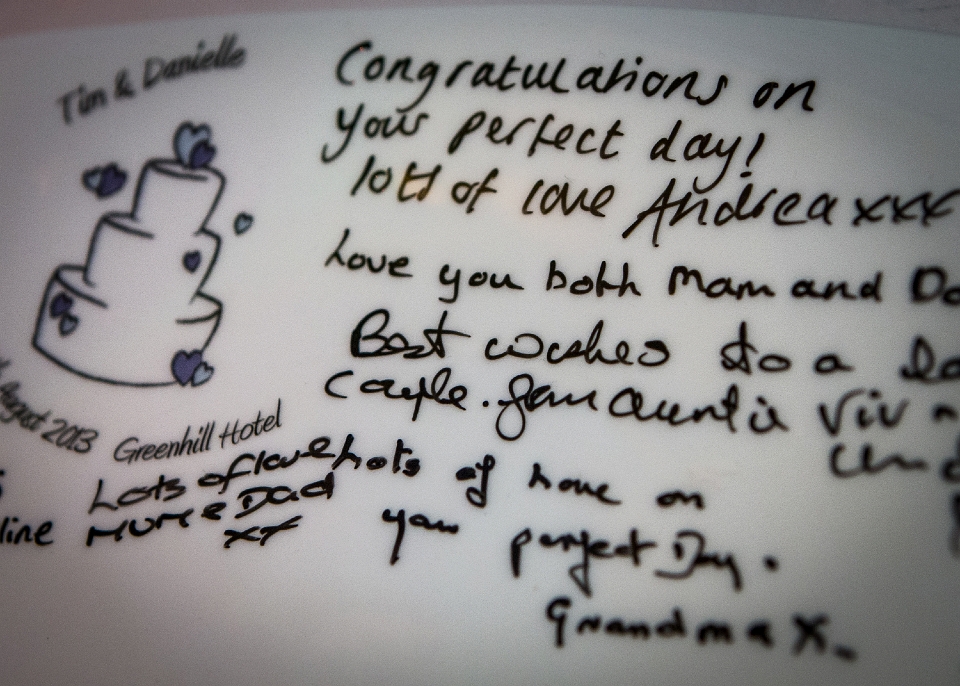 Tim & Danielle
August 2013
Greenhill Hotel
Congratulations on
your perfect day!
lots of love Andrea xxx
Love you both Mam and
Best wishes to a
Couple. from Auntie Viv
Lots of love
Mum & Dad
xx
Lots of love on
your perfect Day.
Grandma X.
line